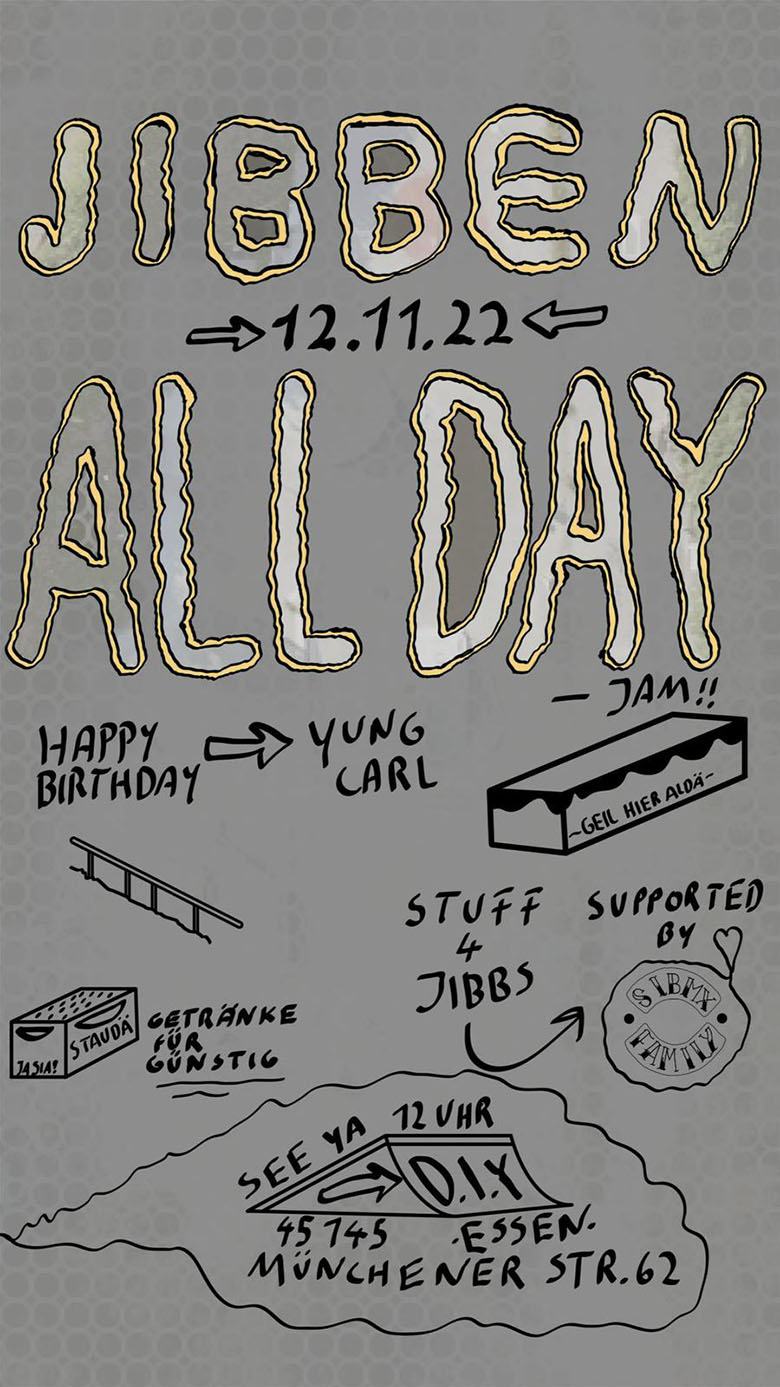 JIBBEN
12.11.22
ALL DAY
– JAM!!
HAPPY
BIRTHDAY
YUNG
CARL
~GEIL HIER ALDÄ~
STUFF
4
JIBBS
SUPPORTED
BY
SIBMX
FAMILY
JASIA!
STAUDÄ
GETRÄNKE
FÜR
GÜNSTIG
SEE YA 12 UHR
D.I.Y
45145 .ESSEN.
MÜNCHENER STR.62